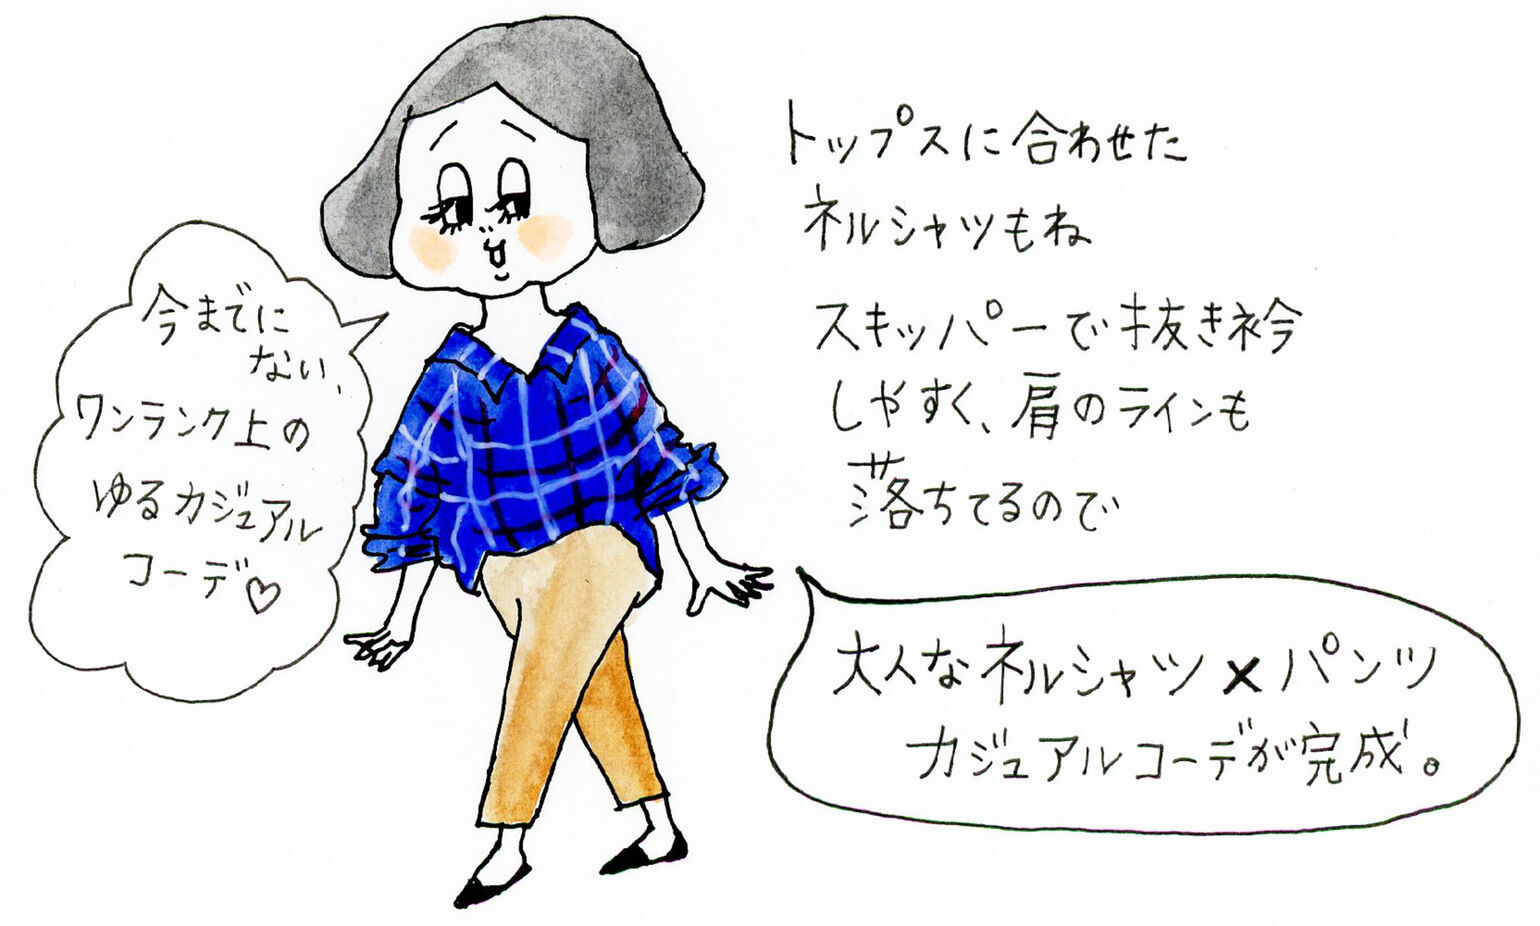 トップスに合わせた
ネルシャツもね
スキッパーで抜き衿
しやすく、肩のラインも
落ちてるので
大人なネルシャツ×パンツ
カジュアルコーデが完成。
今までに
ない、
ワンランク上の
ゆるカジュアル
コーデ♡